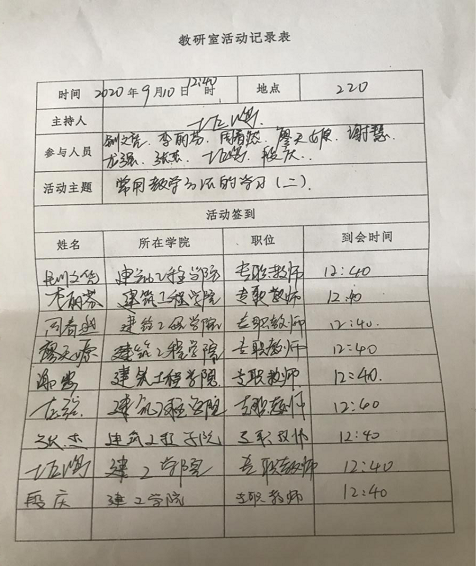 教研室活动记录表
时间 2020年9月10日 12:40 时 地点 220
主持人
参与人员 李丽芬、谢慧、
张杰、段庆
活动主题 常用教学方法的学习(二)、
活动签到
姓名 所在学院 职位 到会时间
建筑工程学院 专职教师 12:40
李丽芬 建筑工程学院 专职教师 12:40
建筑工程学院 专职教师 12:40.
建筑工程学院 专职教师 12:40
谢慧 建筑工程学院 专职教师 12:40.
建筑工程学院 专职教师 12:40
张杰 建筑工程学院 专职教师 12:40
建工学院 专职教师 12:40
段庆 建工学院 专职教师 12:40